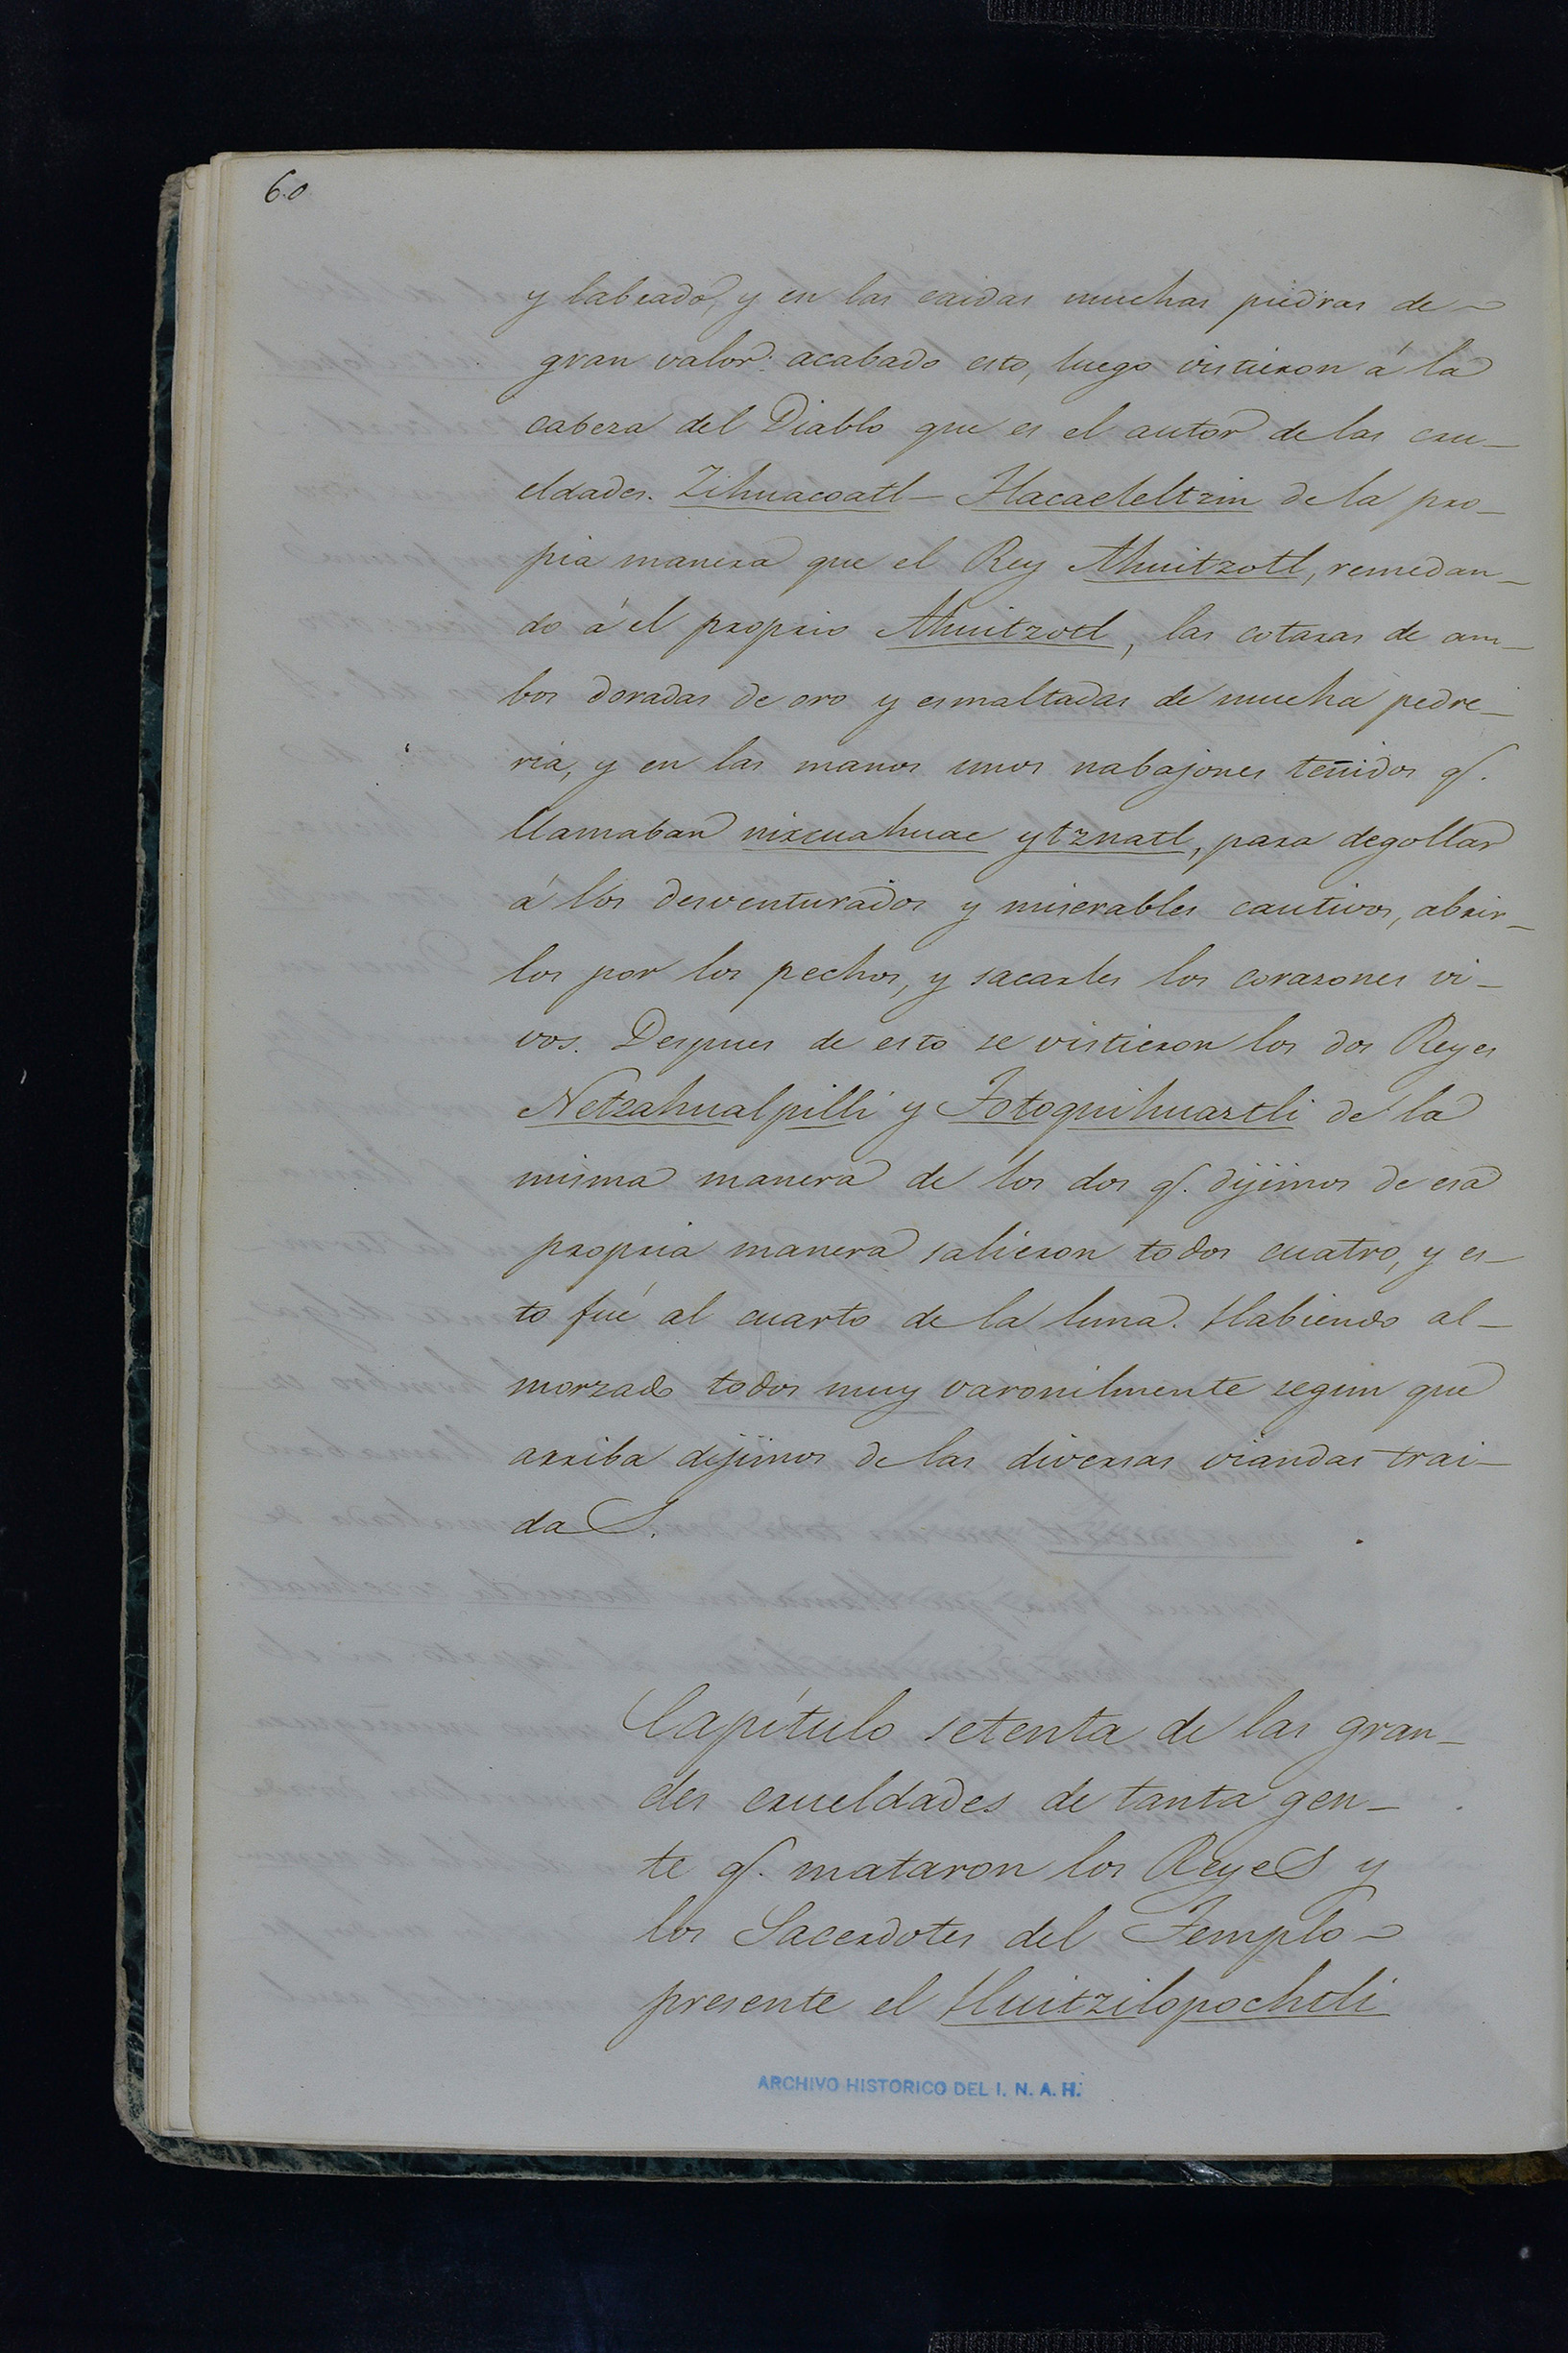 60
y labrado, y en las caidas muchas piedras de
gran valor: acabado esto, luego vistieron á la
cabeza del Diablo que es el autor de las cru-
eldades. Zihuacoatl - Tlacaeleltzin de la pro-
pia manera que el Rey Ahuitzotl, remedan-
do á el proprio Ahuitzotl, las cotaras de am-
bos doradas de oro y esmaltadas de mucha pedre-
ria, y en las manos unos nabajones teñidos q.
llamaban nixcuahuac ytznatl, para degollar
á los desventurados y miserables cautivos, abrir-
los por los pechos, y sacarles los corazones vi-
vos. Despues de esto se vistieron los dos Reyes
Netzahualpilli y Totoquihuaztli de la
misma manera de los dos q. dijimos de esa
propria manera salieron todos cuatro, y es-
to fué al cuarto de la luna. Habiendo al-
morzado todos muy varonilmente segun que
arriba dijimos de las diversas viandas trai-
daS.
Capítulo setenta de las gran-
des crueldades de tanta gen-
te q. mataron los ReyeS y
los Sacerdotes del Templo
presente el Huitzilopochtli
ARCHIVO HISTORICO DEL I. N. A. H.